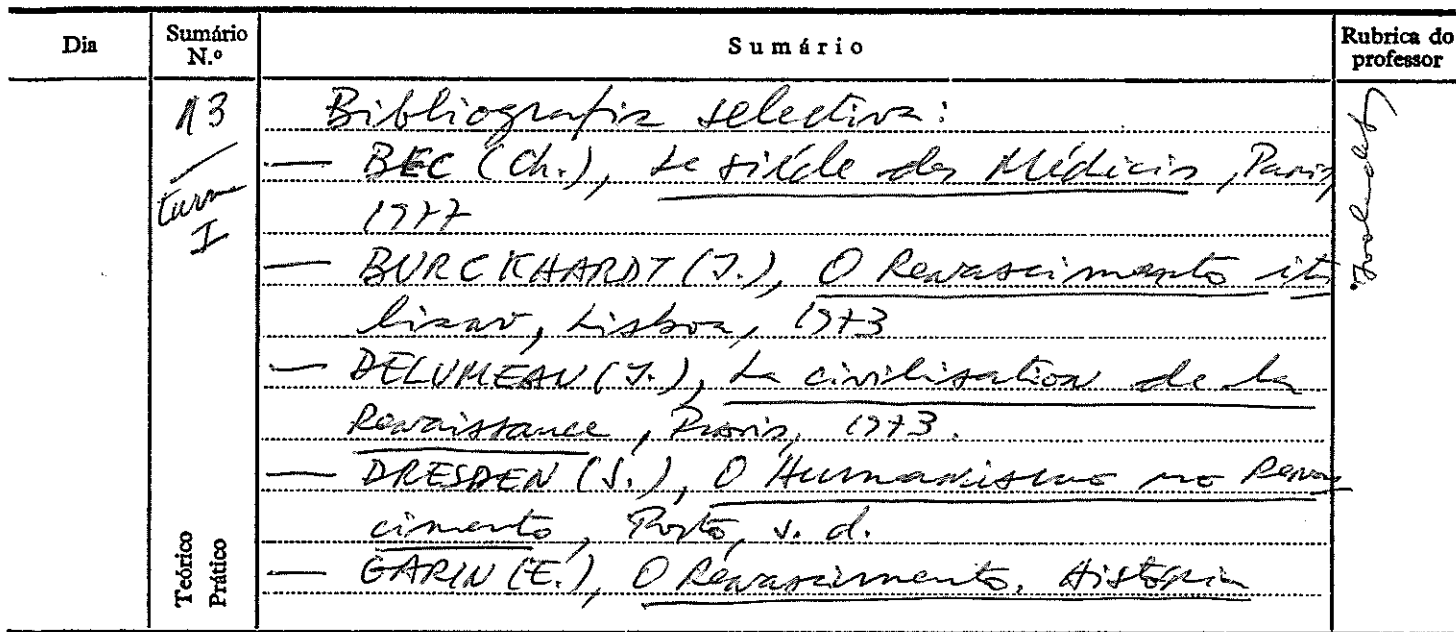 Dia Sumário N.º Sumário Rubrica do professor
13 Bibliografia selectiva:
— BEC (Ch.), Le siècle des Médicis, Paris,
turma 1977
I
— BURCKHARDT (J.), O Renascimento ita
liano, Lisboa, 1973
— DELUMEAU (J.), La civilisation de la
Renaissance, Paris, 1973.
— DRESDEN (S.), O Humanismo no Renas
cimento, Porto, s. d.
— GARIN (E.), O Renascimento. História
Teórico
Prático